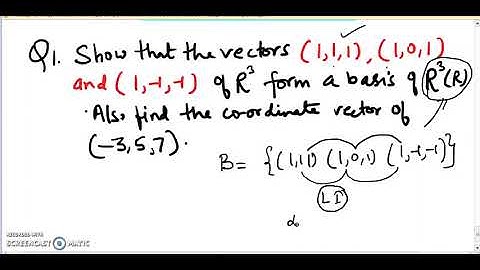 Q1. Show that the vectors (1,1,1), (1,0,1)
and (1,-1,-1) of R³ form a basis of R³(R)
. Also find the coordinate vector of
(-3,5,7).
B = {(1,1,1) (1,0,1) (1,-1,-1)}
LI
RECORDED WITH
SCREENCAST MATIC